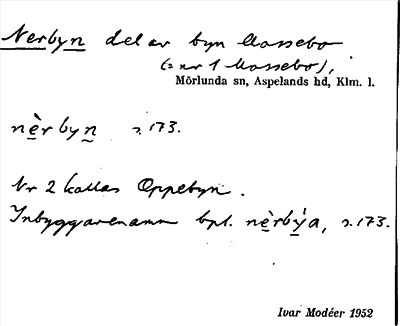 Nerbyn del av byn Mossebo
(= nr 1 Mossebo),
Mörlunda sn, Aspelands hd, Klm. l.
nè̤rbyn̤ s. 173.
Nr 2 kallas Oppebyn.
Inbyggarenamn bpl. nè̤rbỳ̤a, s. 173.
Ivar Modéer 1952